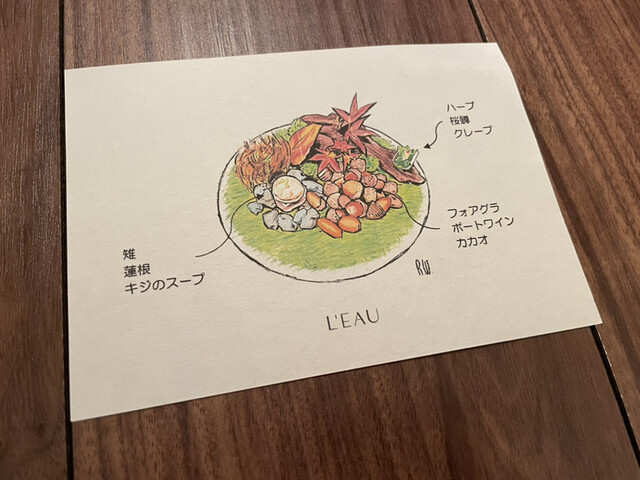 ハーブ
桜鱒
クレープ
フォアグラ
ポートワイン
カカオ
雉
蓮根
キジのスープ
R.W.
L'EAU